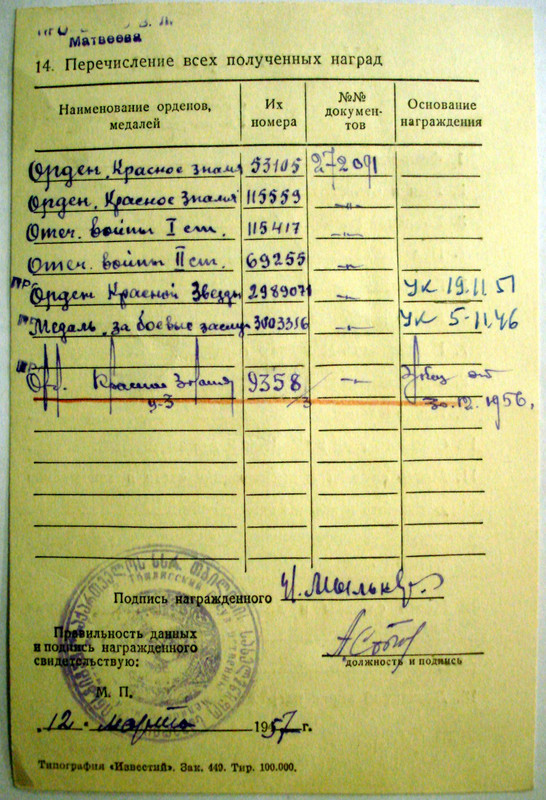 В. Л.
Матвеева
14. Перечисление всех полученных наград
Наименование орденов, медалей
Их номера
№№ документов
Основание награждения
Орден „Красное знамя 53105 272091
Орден „Красное Знамя 115559 —„—
Отеч. войны I ст. 115417 —„—
Отеч. войны II ст. 69255 —„—
Орден Красной Звезды 2989071 —„— УК 19.11 51
Медаль „за боевые заслуг 3003316 —„— УК 5-11.46
Орд. Красное Знамя 9358/3 —„— Указ от
9-3 30.12.1956.
Подпись награжденного
Правильность данных
и подпись награжденного
свидетельствую:
должность и подпись
М. П.
„12„ марта 1957 г.
Типография «Известий». Зак. 449. Тир. 100.000.